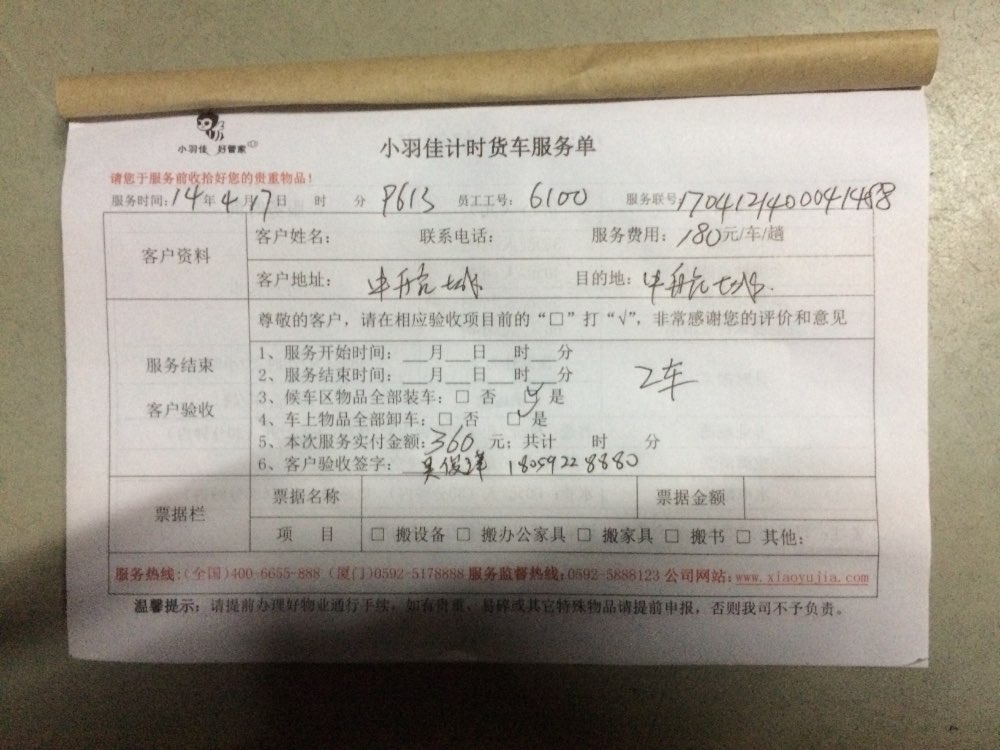 小羽佳 好管家
小羽佳计时货车服务单
请您于服务前收拾好您的贵重物品！
服务时间：14年4月17日 时 分 P613 员工工号：6100 服务联号：
客户资料
客户姓名： 联系电话： 服务费用：180元/车/趟
客户地址：中航城 目的地：中航城.
服务结束
客户验收
尊敬的客户，请在相应验收项目前的“□”打“√”，非常感谢您的评价和意见
1、服务开始时间：___月___日___时___分
2、服务结束时间：___月___日___时___分
2车
3、候车区物品全部装车：□ 否 □ 是
4、车上物品全部卸车：□ 否 □ 是
5、本次服务实付金额：360元；共计 时 分
6、客户验收签字：吴俊锋 18059228880
票据栏
票据名称 票据金额
项 目 □ 搬设备 □ 搬办公家具 □ 搬家具 □ 搬书 □ 其他：
服务热线：(全国)400-6655-888 (厦门)0592-5178888 服务监督热线：0592-5888123 公司网站：www.xiaoyujia.com
温馨提示：请提前办理好物业通行手续，如有贵重、易碎或其它特殊物品请提前申报，否则我司不予负责。